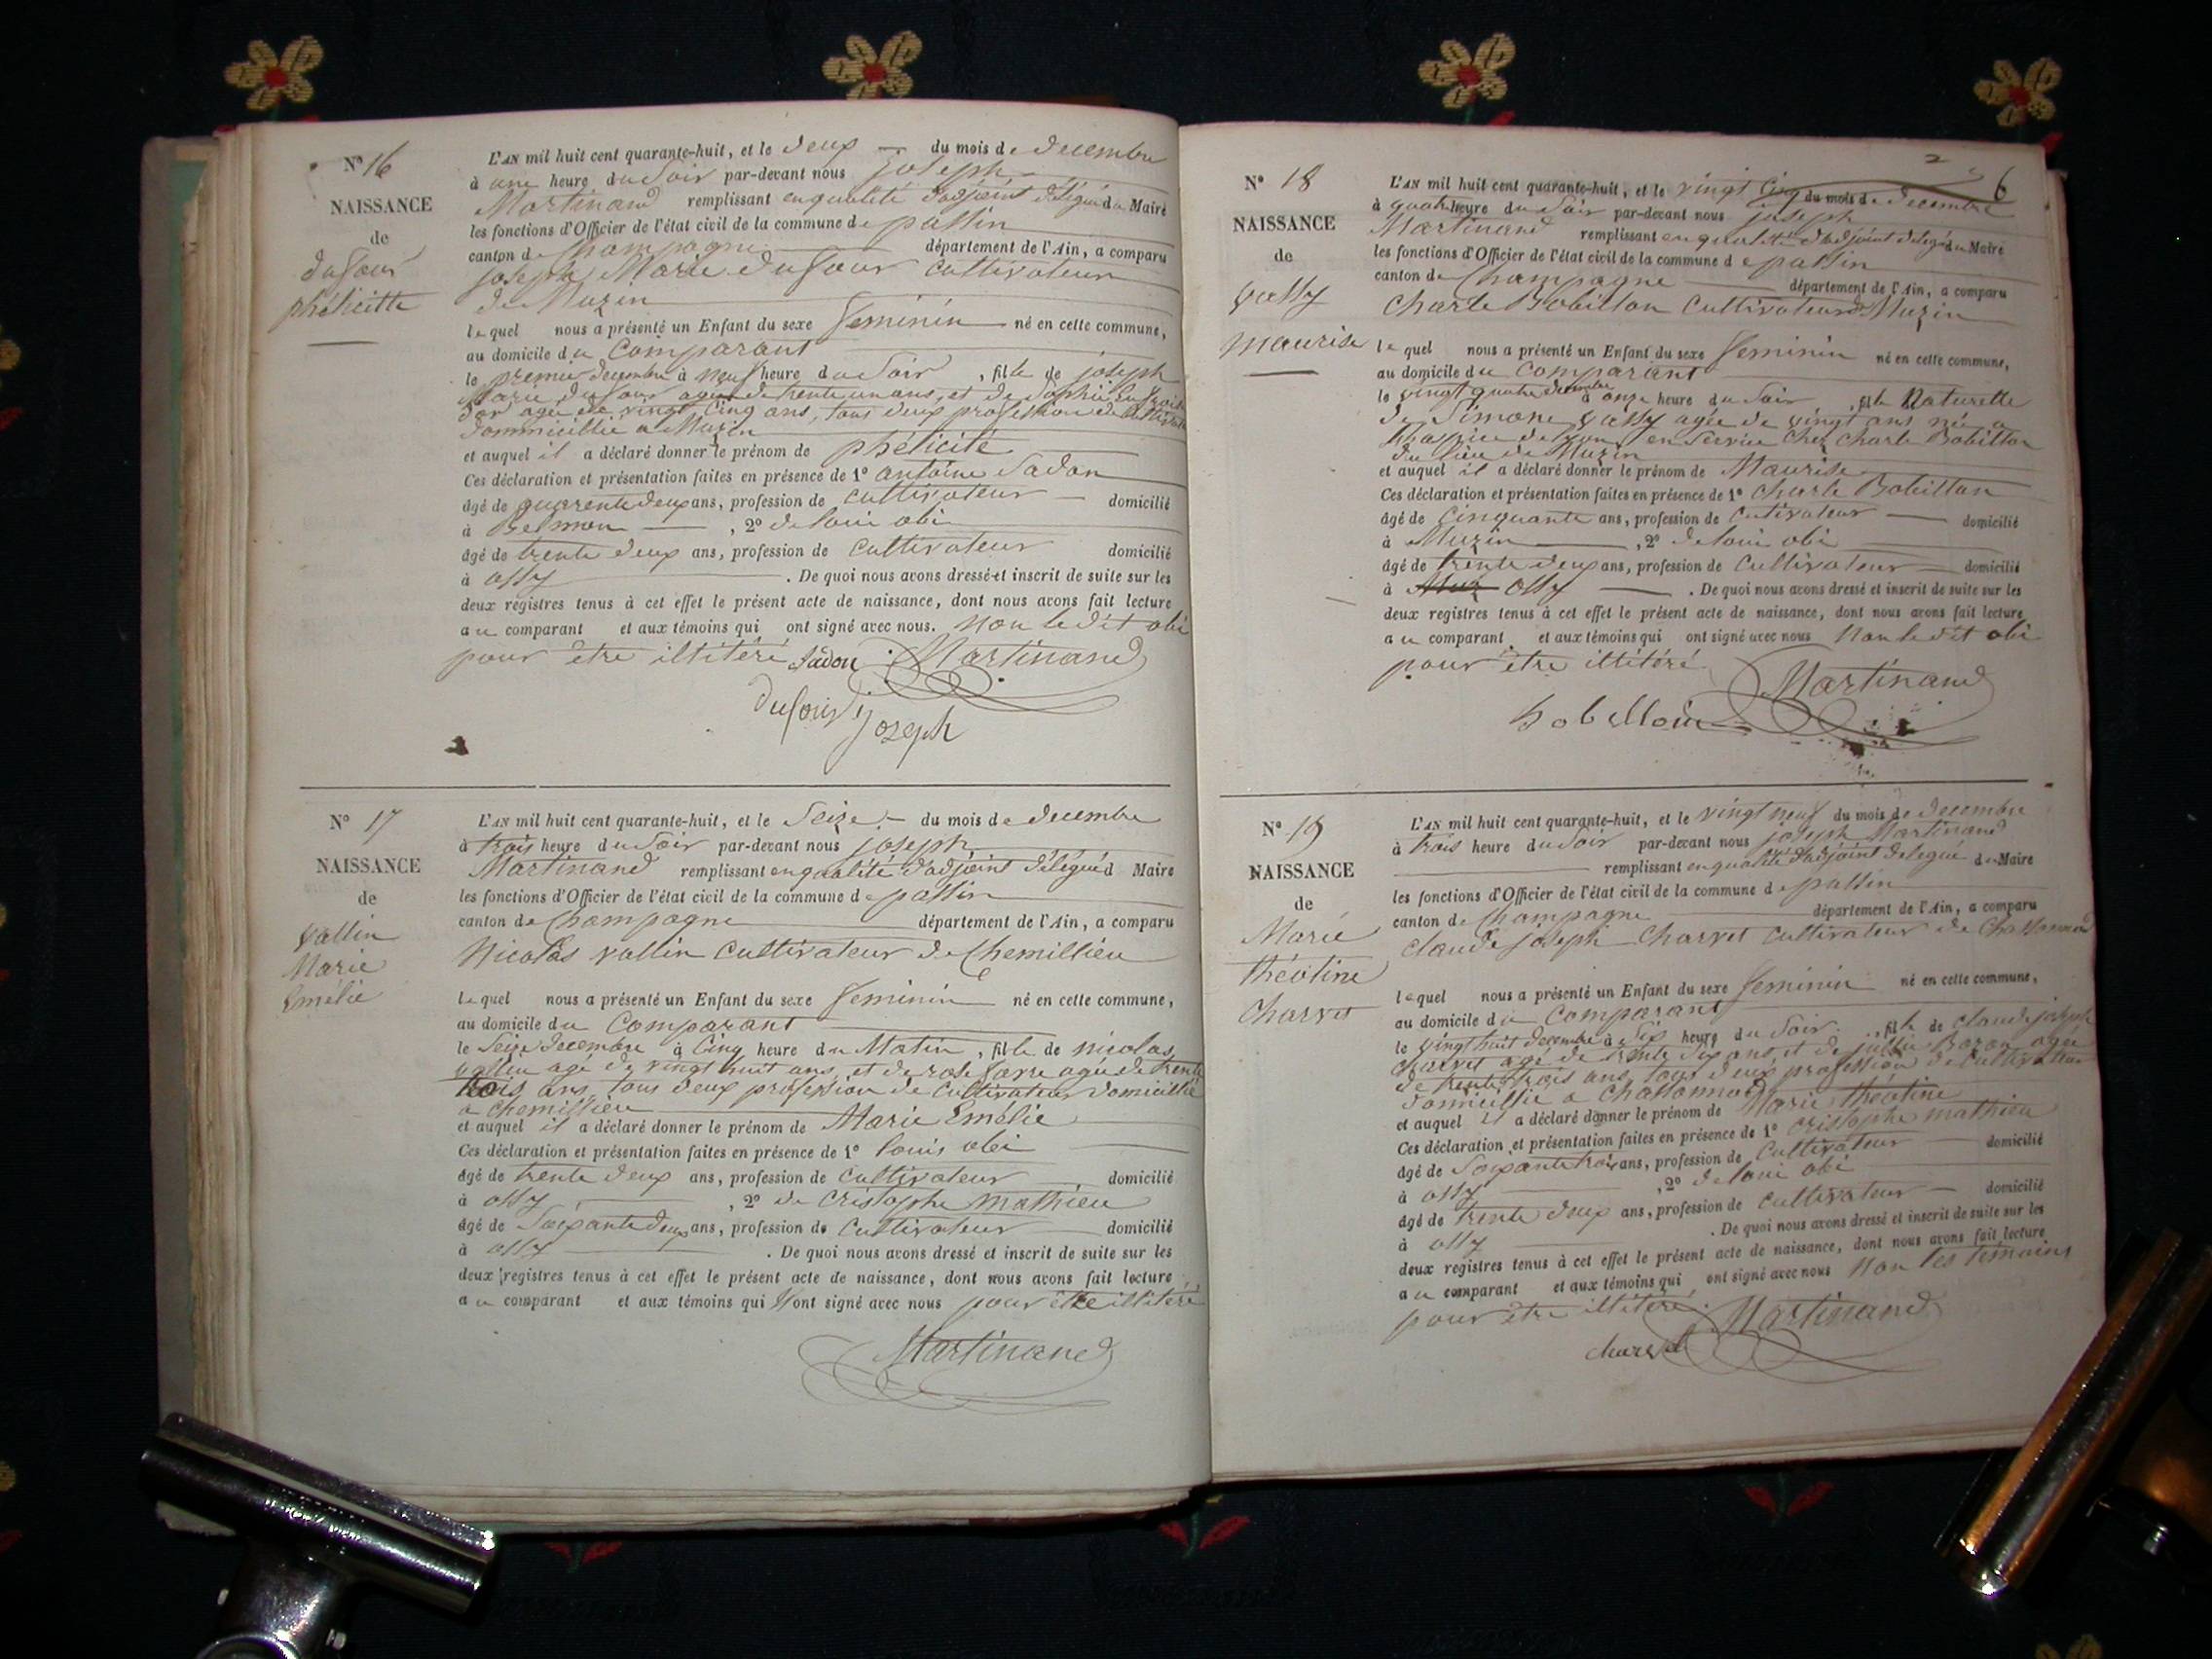 N° 16
NAISSANCE
de
dufour
phélicitte
L'AN mil huit cent quarante-huit, et le deux du mois de decembre
à une heure du Soir par-devant nous joseph
Martinand remplissant en qualité d'adjoint délégué du Maire
les fonctions d'Officier de l'état civil de la commune de passin
canton de Champagne département de l'Ain, a comparu
joseph Marie dufour cultivateur
de Muzin
lequel nous a présenté un Enfant du sexe feminin né en cette commune,
au domicile du Comparant
le premier decembre à neuf heure du Soir, fille de joseph
Marie dufour agé de trente un ans, et de Sophie
agée de vingt Cinq ans, tous deux profession de
dommicillié a Muzin
et auquel il a déclaré donner le prénom de phélicité
Ces déclaration et présentation faites en présence de 1° antoine Sadon
âgé de quarente deux ans, profession de cultivateur domicilié
à Belmon, 2° de loui obi
âgé de trente deux ans, profession de Cultivateur domicilié
à ossy. De quoi nous avons dressé et inscrit de suite sur les
deux registres tenus à cet effet le présent acte de naissance, dont nous avons fait lecture
au comparant et aux témoins qui ont signé avec nous. Non le dit obi
pour être illitéré Sadon Martinand
dufour joseph
N° 17
NAISSANCE
de
Vallin
Marie
Emélie
L'AN mil huit cent quarante-huit, et le Seize du mois de decembre
à trois heure du Soir par-devant nous joseph
Martinand remplissant en qualité d'adjoint délégué d Maire
les fonctions d'Officier de l'état civil de la commune de passin
canton de Champagne département de l'Ain, a comparu
Nicolas vallin Cultivateur de Chemillieu
lequel nous a présenté un Enfant du sexe feminin né en cette commune,
au domicile du Comparant
le Seize decembre à Cinq heure du Matin, fille de nicolas
vallin agé de vingt huit ans, et de rose agée de trente
trois ans, tous deux profession de Cultivateur domicillié
a Chemillieu
et auquel il a déclaré donner le prénom de Marie Emélie
Ces déclaration et présentation faites en présence de 1° louis obi
âgé de trente deux ans, profession de Cultivateur domicilié
à ossy, 2° de Cristophe Mathieu
âgé de Soixante deux ans, profession de Cultivateur domicilié
à ossy. De quoi nous avons dressé et inscrit de suite sur les
deux registres tenus à cet effet le présent acte de naissance, dont nous avons fait lecture
au comparant et aux témoins qui Nont signé avec nous pour être illitéré
Martinand
2
6
N° 18
NAISSANCE
de
Vassy
Maurise
L'AN mil huit cent quarante-huit, et le vingt Cinq du mois de decembre
à quatre heure du Soir par-devant nous joseph
Martinand remplissant en qualité d'adjoint délégué du Maire
les fonctions d'Officier de l'état civil de la commune de passin
canton de Champagne département de l'Ain, a comparu
Charle Bobillon Cultivateur de Muzin
lequel nous a présenté un Enfant du sexe feminin né en cette commune,
au domicile du Comparant
le vingt quatre decembre à onze heure du Soir, fille Naturelle
de Simone Vassy agée de vingt ans née a
lhospice de lyon en Service chez Charle Bobillon
du lieu de Muzin
et auquel il a déclaré donner le prénom de Maurise
Ces déclaration et présentation faites en présence de 1° Charle Bobillon
âgé de Cinquante ans, profession de Cutivateur domicilié
à Muzin, 2° de loui obi
âgé de trente deux ans, profession de Cultivateur domicilié
à Muz ossy. De quoi nous avons dressé et inscrit de suite sur les
deux registres tenus à cet effet le présent acte de naissance, dont nous avons fait lecture
au comparant et aux témoins qui ont signé avec nous Non le dit obi
pour être illitéré Martinand
N° 19
NAISSANCE
de
Marie
théotine
Charvet
L'AN mil huit cent quarante-huit, et le vingt neuf du mois de decembre
à trois heure du Soir par-devant nous joseph Martinand
remplissant en qualité d'adjoint délégué du Maire
les fonctions d'Officier de l'état civil de la commune de passin
canton de Champagne département de l'Ain, a comparu
Claude joseph Charvet Cultivateur de
lequel nous a présenté un Enfant du sexe feminin né en cette commune,
au domicile du Comparant
le vingt huit decembre à Six heure du Soir, fille de Claude joseph
Charvet agé de trente Six ans, et de agée
de trente trois ans, tous deux profession de Cultivateur
domicillié a
et auquel il a déclaré donner le prénom de Marie théotine
Ces déclaration et présentation faites en présence de 1° Cristophe Mathieu
âgé de Soixante trois ans, profession de Cultivateur domicilié
à ossy, 2° de loui obi
âgé de trente deux ans, profession de Cultivateur domicilié
à ossy. De quoi nous avons dressé et inscrit de suite sur les
deux registres tenus à cet effet le présent acte de naissance, dont nous avons fait lecture
au comparant et aux témoins qui ont signé avec nous Non les témoins
pour être illitéré. Martinand
Charvet